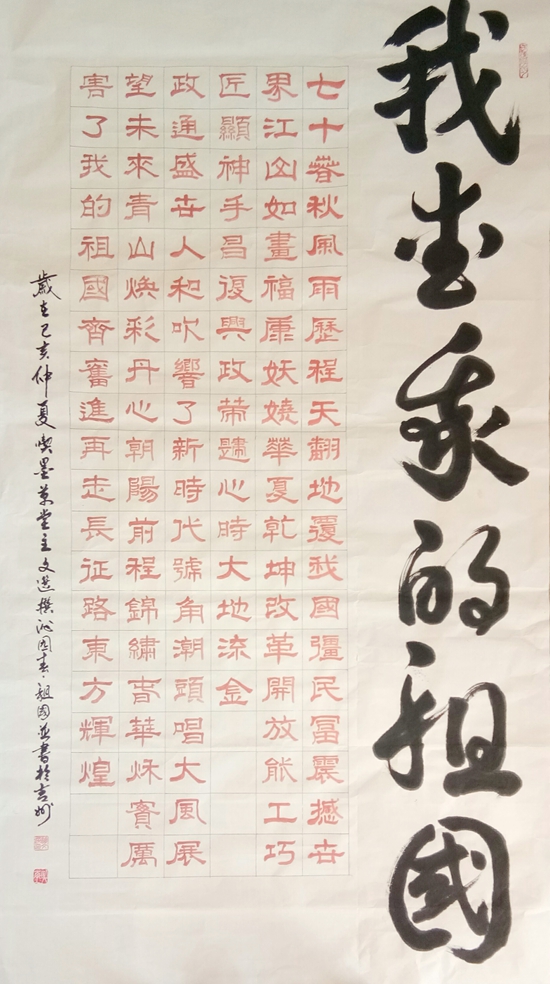 我爱我的祖國
七十春秋風雨歷程天翻地覆我國彊民富震撼世
界江山如畫福康妖嬈華夏乾坤改革開放能工巧
匠顯神手昌復興政策心時大地流金
政通盛世人和吹響了新時代號角潮頭唱大風展
望未來青山煥彩丹心朝陽前程錦繡春華秋實厲
害了我的祖國齊奮進再走長征路東方輝煌
歲在己亥仲夏喫墨草堂主文選撰沁园春·祖国並書於吉州